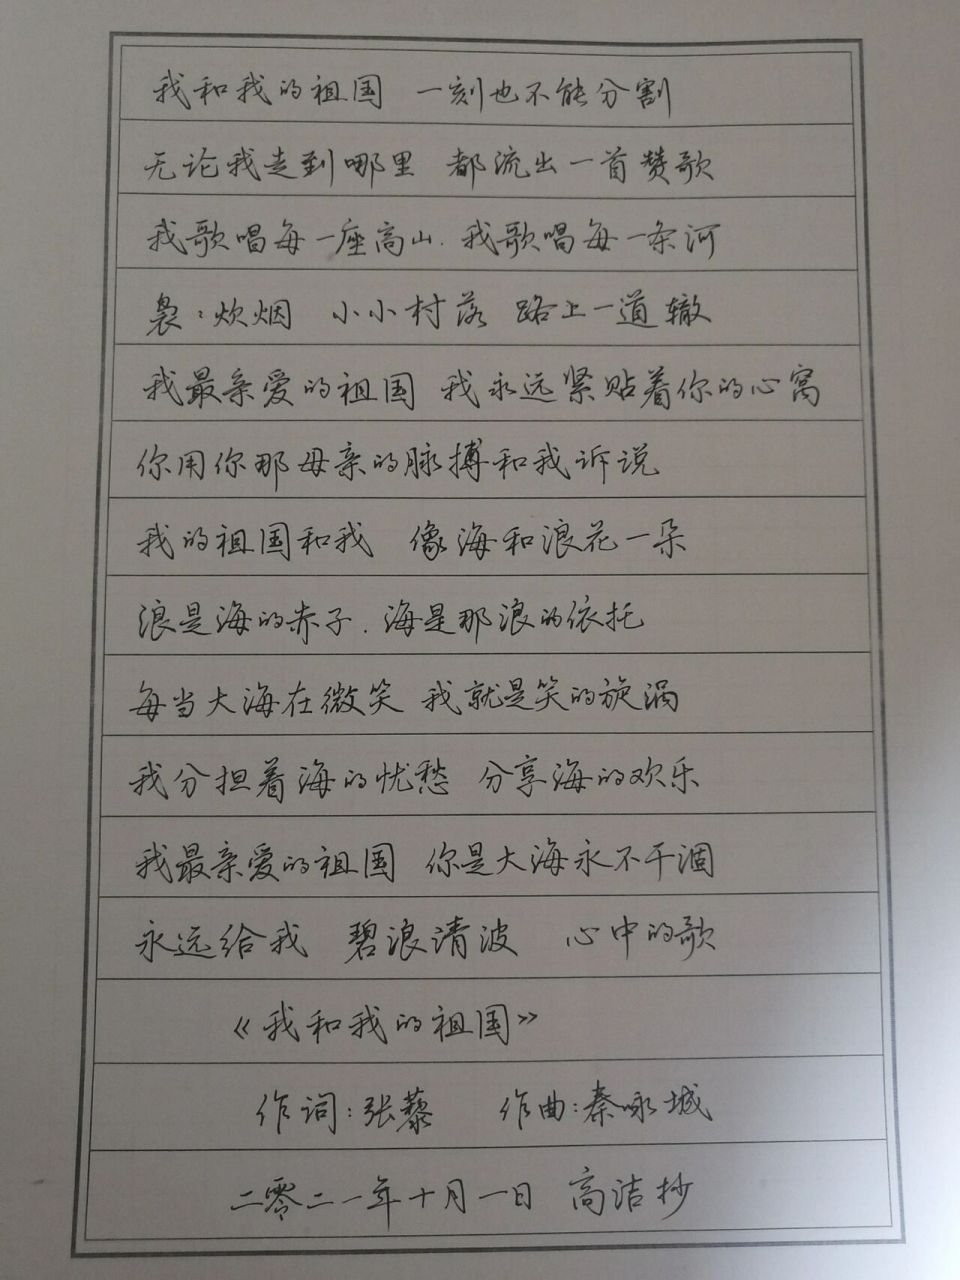 我和我的祖国 一刻也不能分割
无论我走到哪里 都流出一首赞歌
我歌唱每一座高山.我歌唱每一条河
袅:炊烟 小小村落 路上一道辙
我最亲爱的祖国 我永远紧贴着你的心窝
你用你那母亲的脉搏和我诉说
我的祖国和我 像海和浪花一朵
浪是海的赤子.海是那浪的依托
每当大海在微笑 我就是笑的旋涡
我分担着海的忧愁 分享海的欢乐
我最亲爱的祖国 你是大海永不干涸
永远给我 碧浪清波 心中的歌
《我和我的祖国》
作词:张藜 作曲:秦咏城
二零二一年十月一日 高洁抄